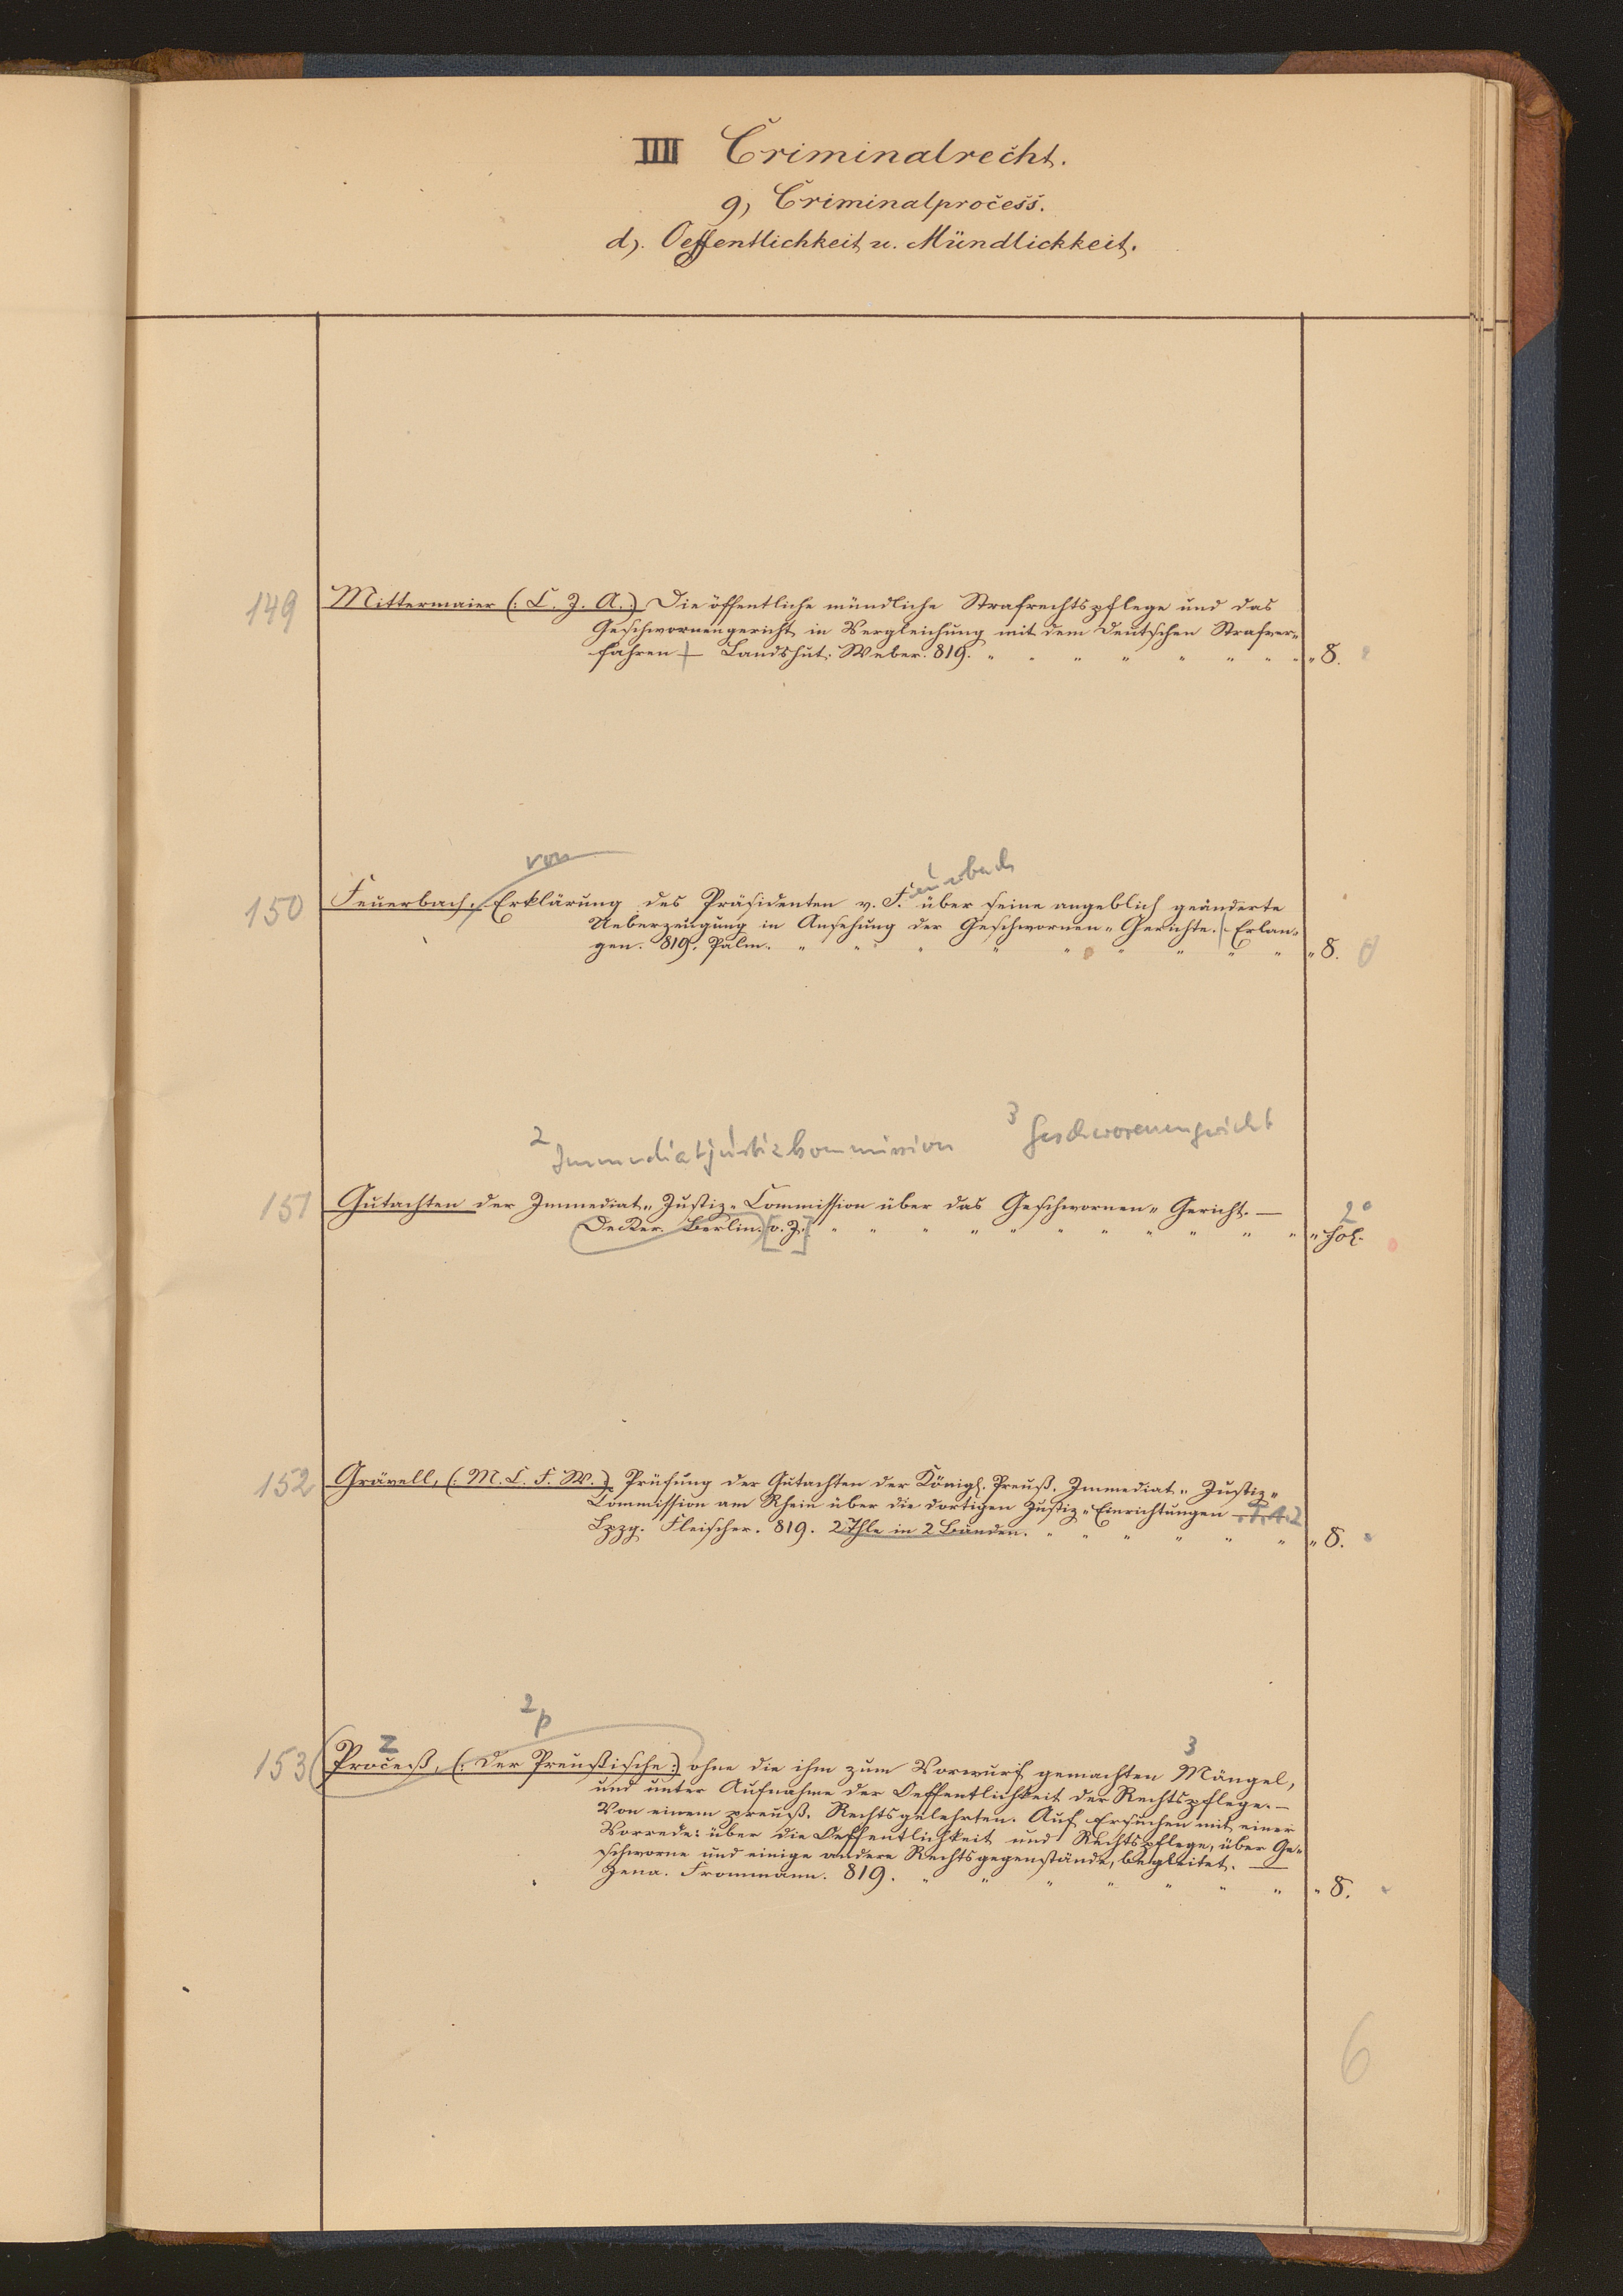 IIII Criminalrecht.
g) Criminalprocess.
d). Oeffentlichkeit u. Mündlickkeit.
149 Mittermaier (: C. J. A.) Die öffentliche mündliche Strafrechtspflege und das
Geschwornengericht in Vergleichung mit dem deutschen Strafver-
fahren — Landshut. Weber. 819. " " " " " " " " 8.
von
Feuerbach
150 Feuerbach, Erklärung des Präsidenten v. F. über seine angeblich geänderte
Ueberzeugung in Ansehung der Geschwornen- Gerichte. Erlan-
gen. 819. Palm. " " " " " " " " " 8.
2 Immediatjustizkommission 3 Geschworenengericht
151 Gutachten der Immediat- Justiz- Commission über das Geschwornen- Gericht. —
Decker. Berlin. [o. J.] " " " " " " " " " " " fol. 2°
152 Grävell, (: M. C. F. W.) Prüfung der Gutachten der Königl. Preuß. Immediat- Justiz-
Commission am Rhein über die dortigen Justiz- Einrichtungen
Lpzg. Fleischer. 819. 2 Thle in 2 Bänden. " " " " " " " 8.
2 p
2 3
153 Proceß, (: der Preußische:) ohne die ihm zum Vorwurf gemachten Mängel,
und unter Aufnahme der Oeffentlichkeit der Rechtspflege. —
Von einem preuß. Rechtsgelehrten. Auf Ersuchen mit einer
Vorrede: über die Oeffentlichkeit und Rechtspflege, über Ge-
schworne und einige andere Rechtsgegenstände, begleitet. —
Jena. Frommann. 819. " " " " " " " " 8.
6